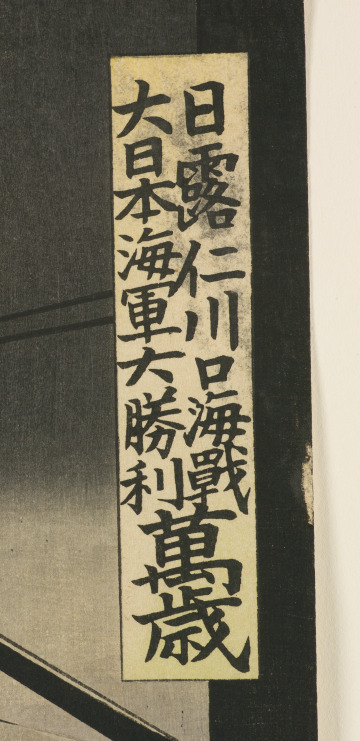 日露仁川口海戰
大日本海軍大勝利
萬歳